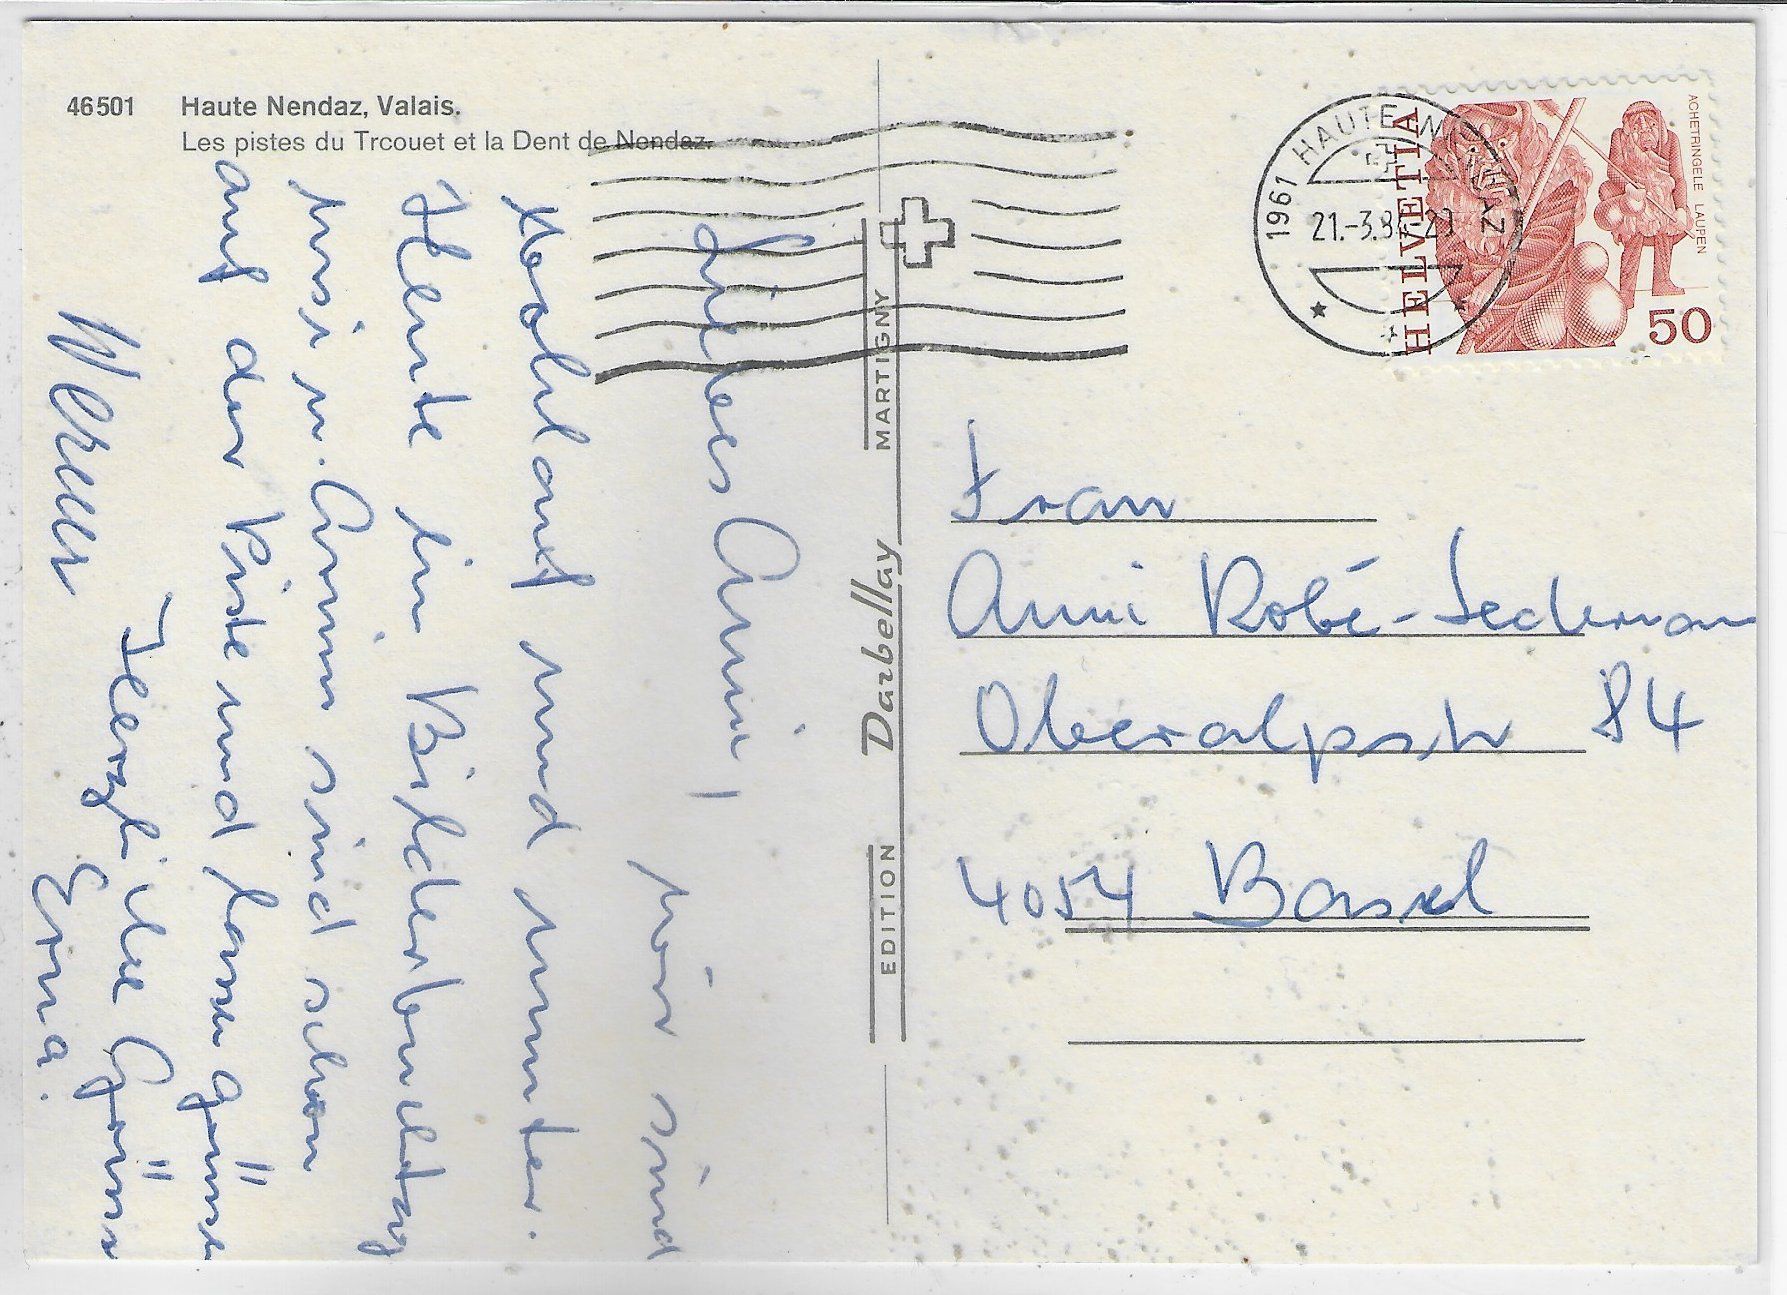 46501 Haute Nendaz, Valais.
Les pistes du Trcouet et la Dent de Nendaz.
Liebes Anni!
wir sind
wohlauf und munter.
Heute ein Bilderbuchtag
Ursi u. Armin sind schon
auf der Piste und lassen grüssen
Herzliche Grüsse
Werner Erna.
EDITION Darbellay MARTIGNY
1961 HAUTE-NENDAZ
21.-3.8 -20
HELVETIA
ACHETRINGELE LAUPEN
50
Frau
Anni Robé-Lederman
Oberalpstr 84
4054 Basel